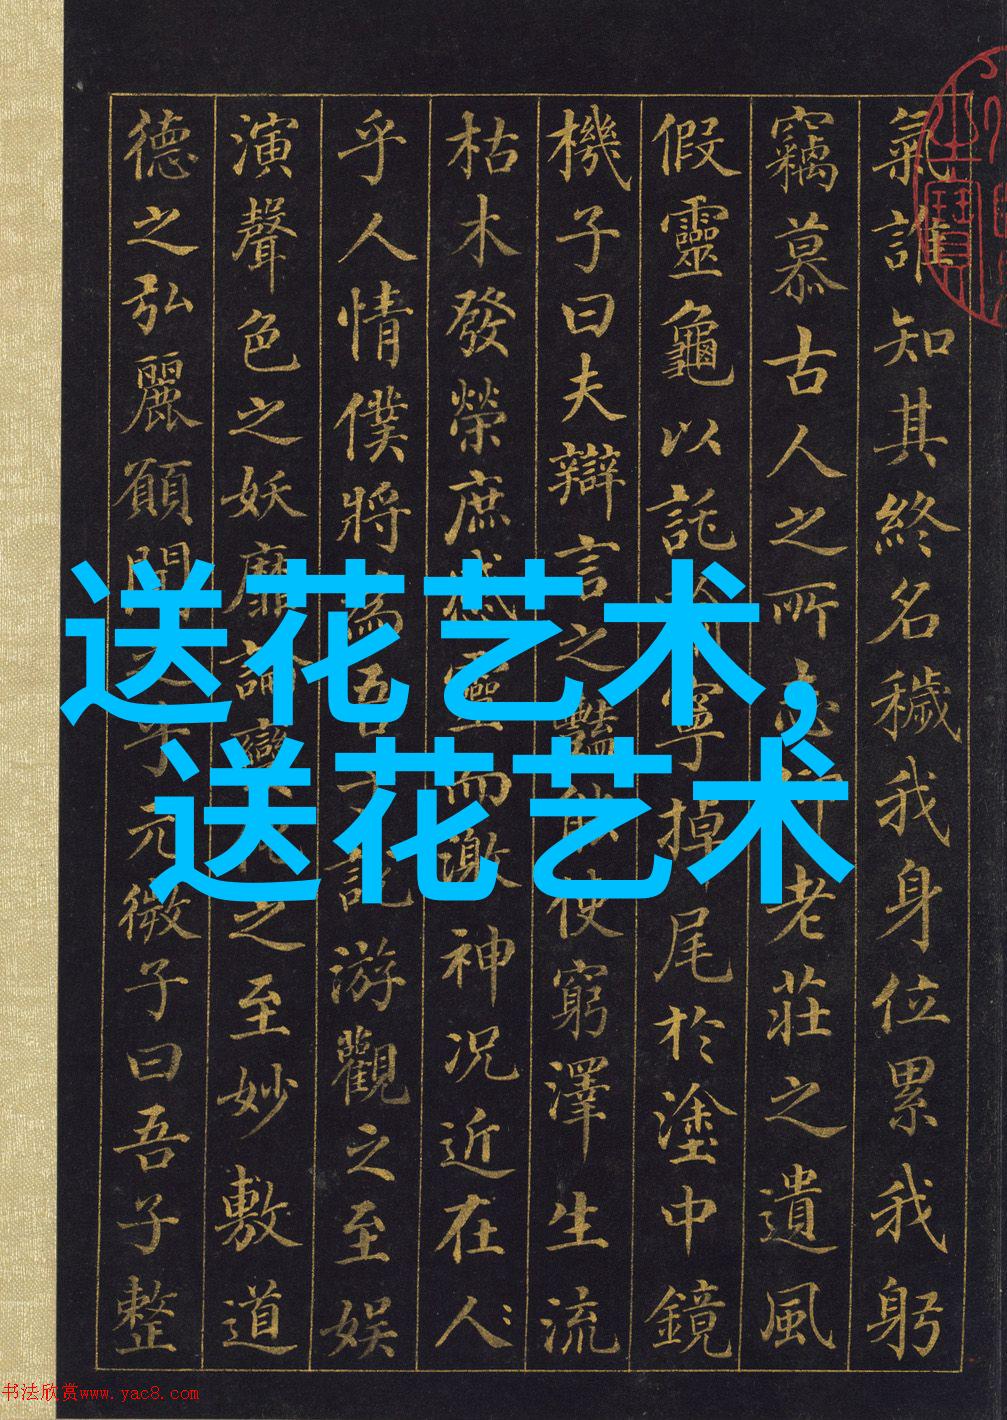 送花艺术,
送花艺术
氣誰知其終名穢我身位累我躬
竊慕古人之所志仰老莊之遺風
假靈龜以託寧掉尾於塗中鏡
機子曰夫辯言之豔能使窮澤生流
枯木發榮庶感靈而激神況近在人
乎人情僕將為吾子說游觀之至娛
演聲色之妖靡論變化之至妙敷道
德之弘麗願聞之乎元微子曰吾子整
书法欣赏www.yac8.com